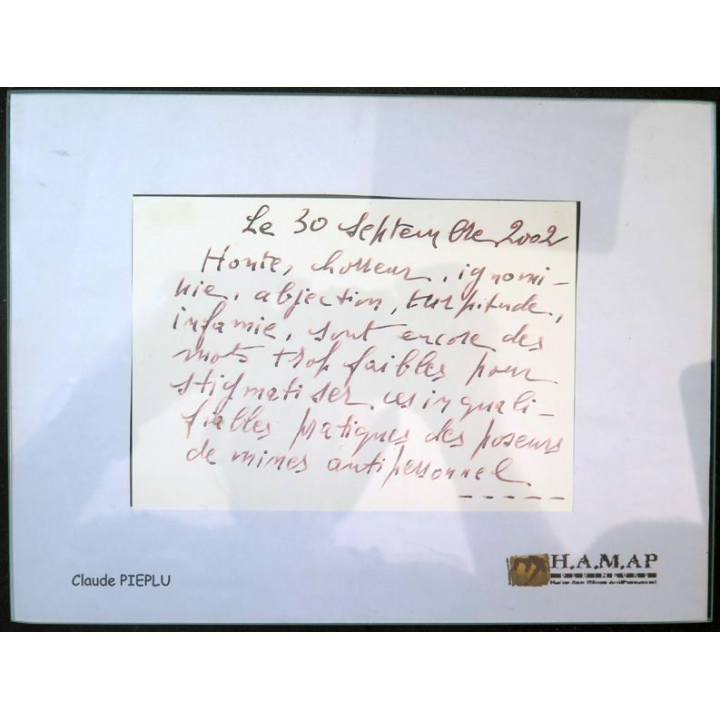 Le 30 septembre 2002
Honte, horreur, ignomi-
nie, abjection, turpitude,
infamie, sont encore des
mots trop faibles pour
stigmatiser ces inquali-
fiables pratiques des poseurs
de mines antipersonnel
Claude PIEPLU
H.A.M.AP
Halte Aux Mines AntiPersonnel